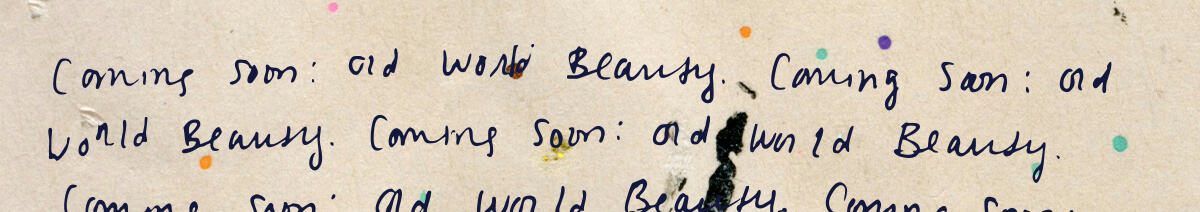 Coming soon: Old World Beauty. Coming soon: Old
World Beauty. Coming soon: Old World Beauty.
Coming soon: Old World Beauty. Coming soon: